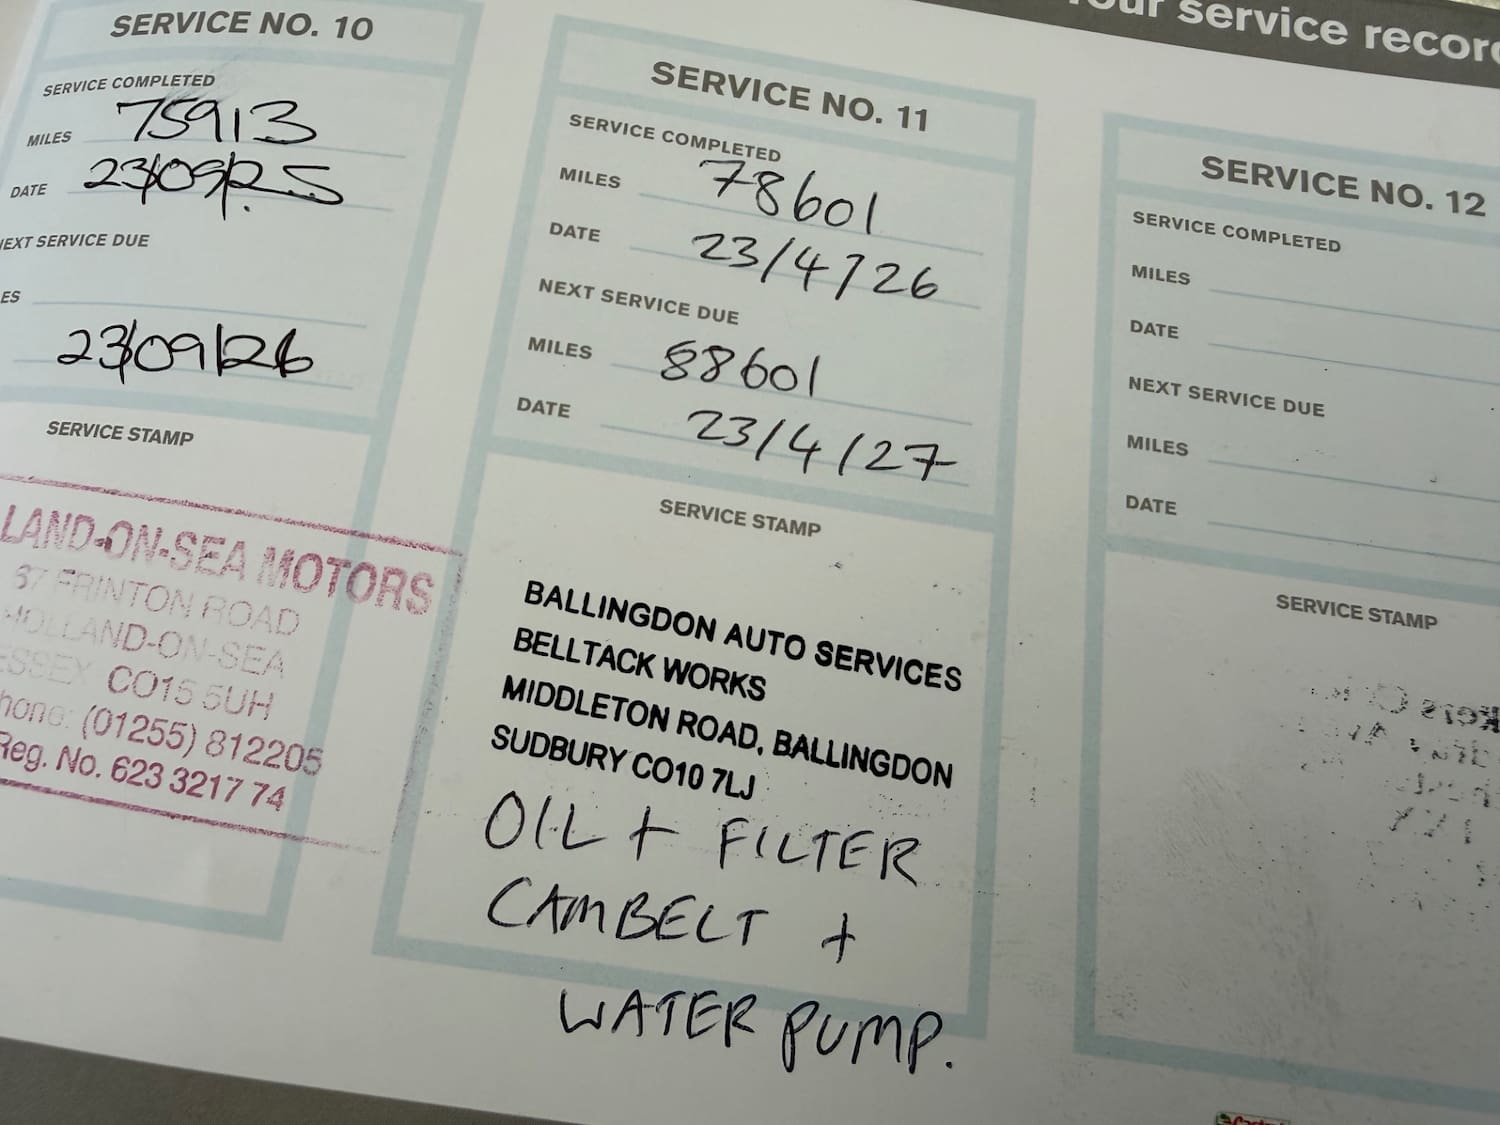 our service record
SERVICE NO. 10
SERVICE COMPLETED
MILES 75913
DATE 23/09/25
NEXT SERVICE DUE
ES
23/09/26
SERVICE STAMP
LAND-ON-SEA MOTORS
67 FRINTON ROAD
HOLLAND-ON-SEA
ESSEX CO15 5UH
hone: (01255) 812205
Reg. No. 623 3217 74
SERVICE NO. 11
SERVICE COMPLETED
MILES 78601
DATE 23/4/26
NEXT SERVICE DUE
MILES 88601
DATE 23/4/27
SERVICE STAMP
BALLINGDON AUTO SERVICES
BELLTACK WORKS
MIDDLETON ROAD, BALLINGDON
SUDBURY CO10 7LJ
OIL + FILTER
CAMBELT +
WATER PUMP.
SERVICE NO. 12
SERVICE COMPLETED
MILES
DATE
NEXT SERVICE DUE
MILES
DATE
SERVICE STAMP